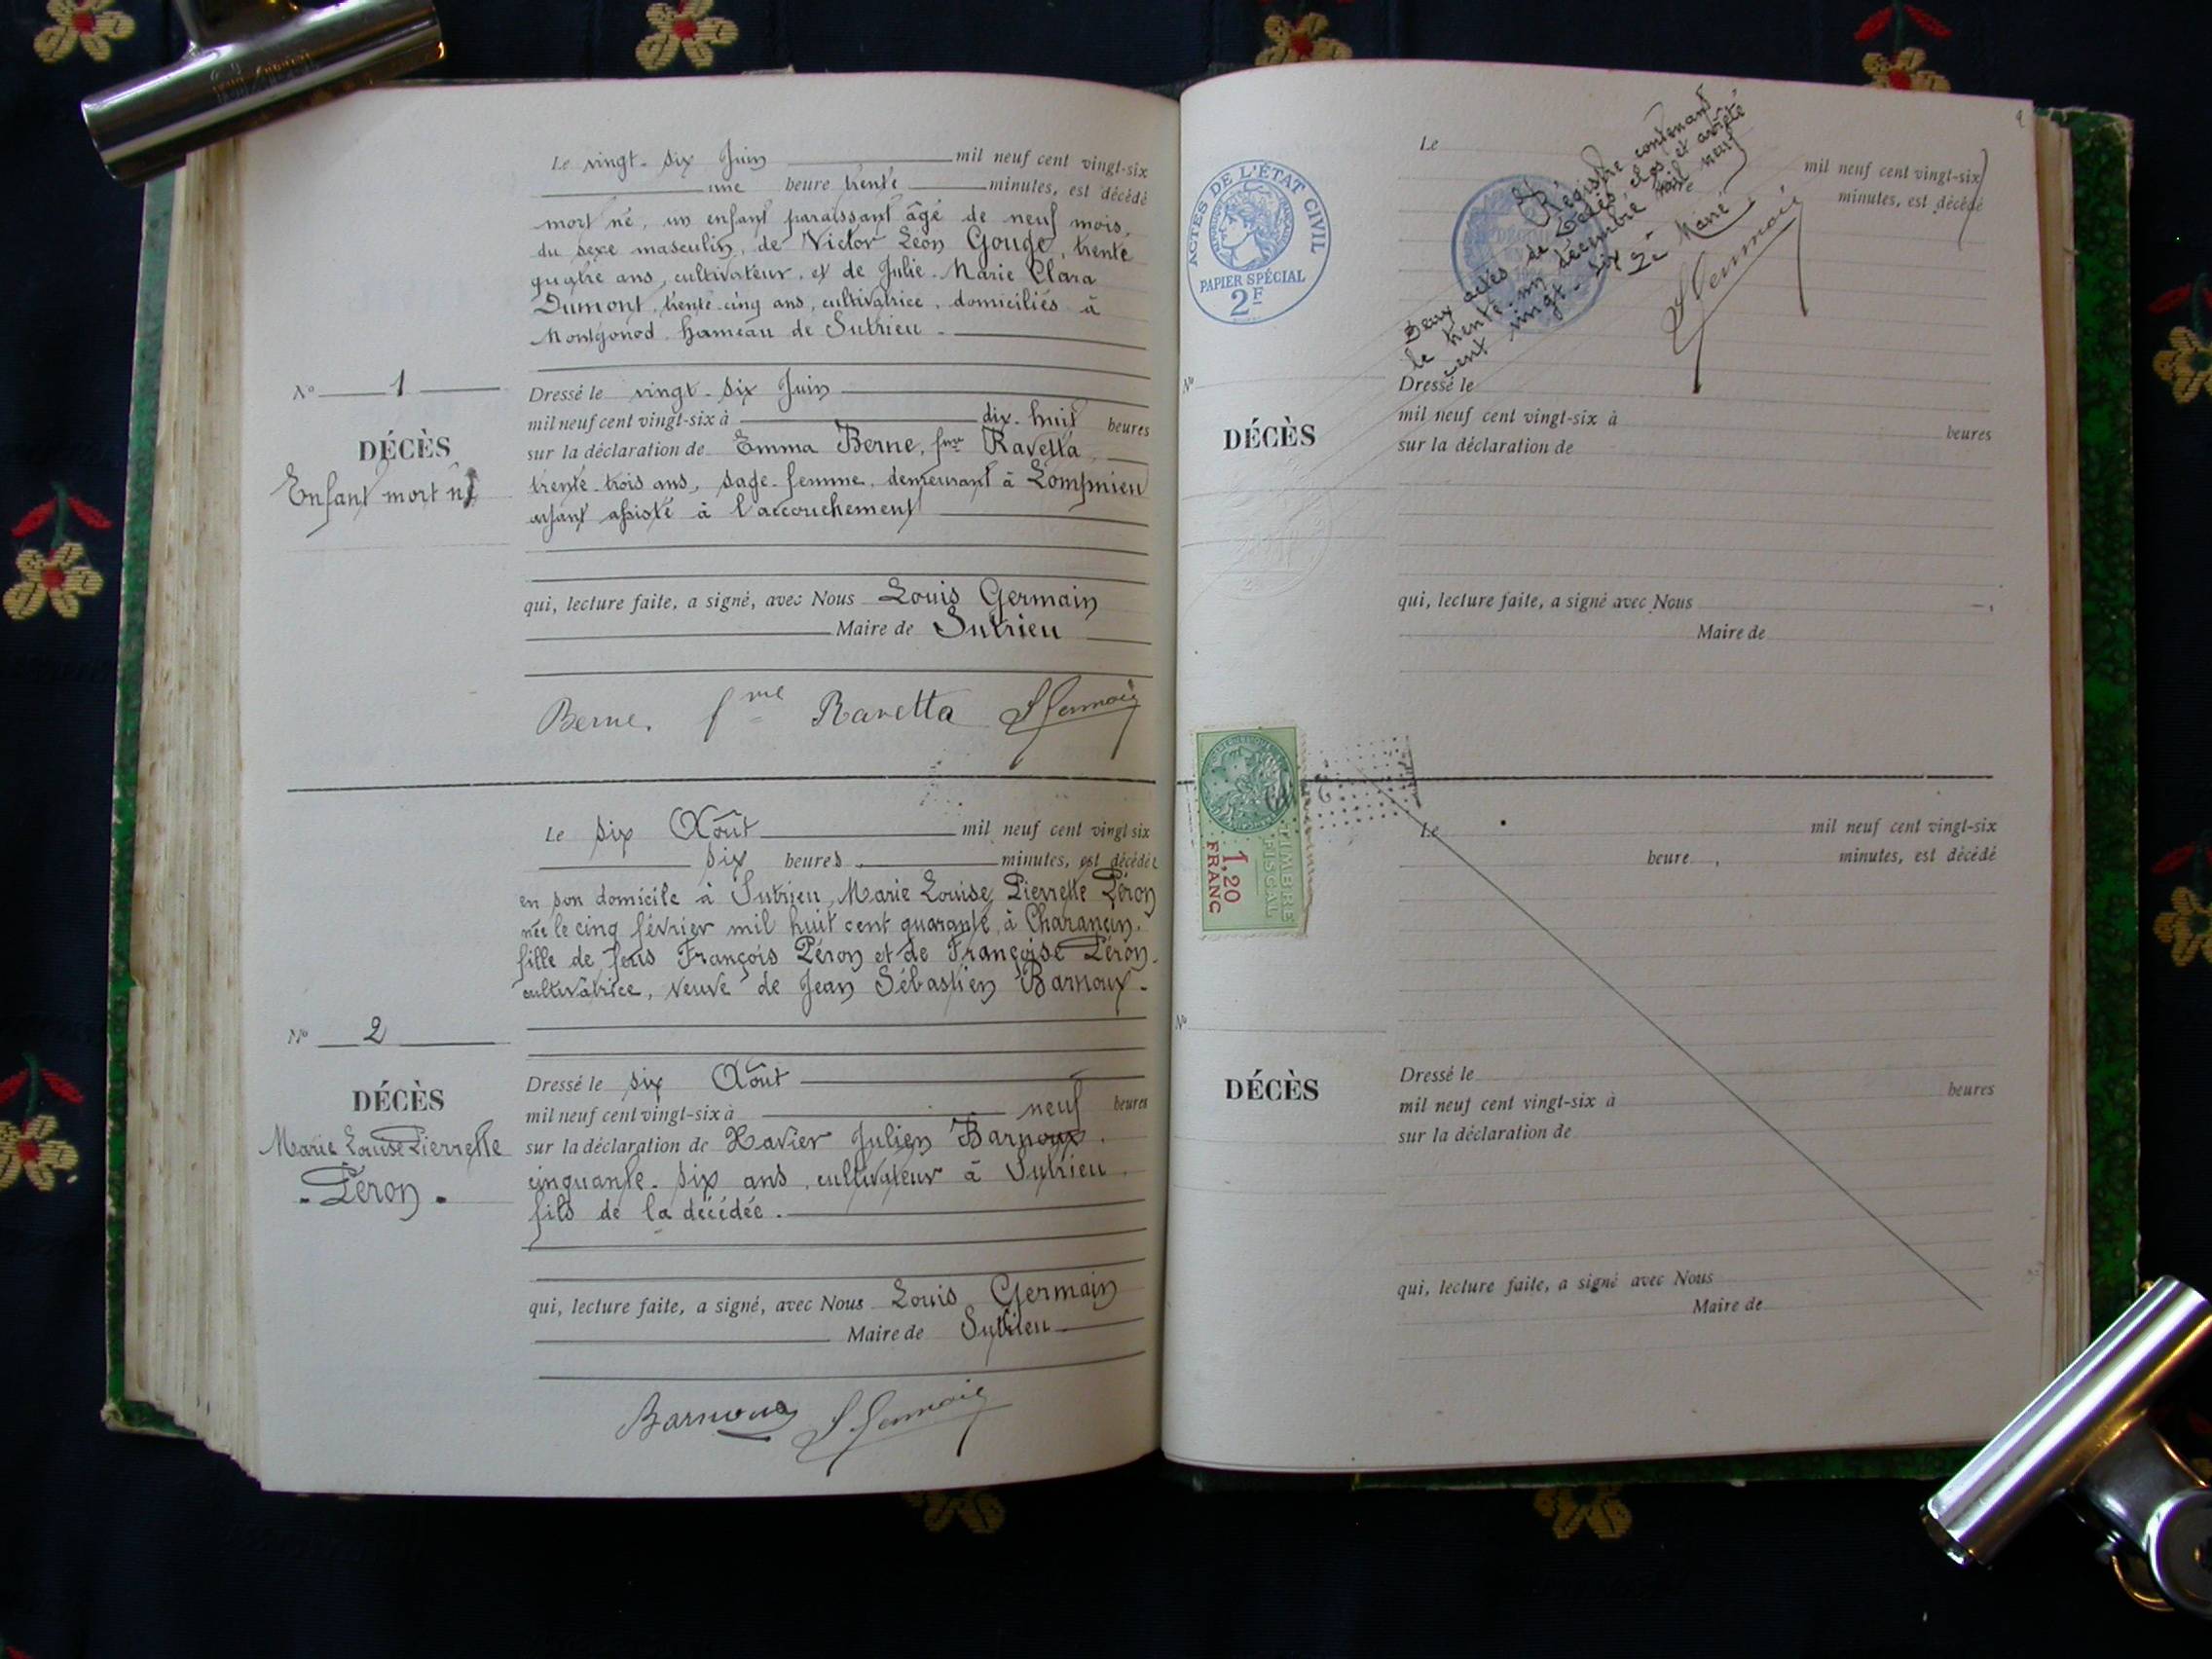 Le vingt-six Juin mil neuf cent vingt-six
une heure trente minutes, est décédé
mort né, un enfant paraissant âgé de neuf mois,
du sexe masculin, de Victor Léon Gouge, trente
quatre ans, cultivateur, et de Julie Marie Clara
Dumont, trente-cinq ans, cultivatrice, domiciliés à
Montgonod hameau de Sutrieu
No 1
DÉCÈS
Enfant mort né
Dressé le vingt-six Juin
mil neuf cent vingt-six à dix-huit heures
sur la déclaration de Emma Berne, fme Ravetta,
trente-trois ans, sage-femme, demeurant à Lompnieu
ayant assisté à l'accouchement
qui, lecture faite, a signé, avec Nous Louis Germain
Maire de Sutrieu
Berne. fme Ravetta L Germain
Le six Août mil neuf cent vingt-six
six heures minutes, est décédée
en son domicile à Sutrieu, Marie Louise Pierrette Péron
née le cinq février mil huit cent quarante, à Charancin.
fille de feus François Péron et de Françoise Péron.
cultivatrice, veuve de Jean Sébastien Barnoux.
No 2
DÉCÈS
Marie Louise Pierrette
- Péron -
Dressé le six Août
mil neuf cent vingt-six à neuf heures
sur la déclaration de Xavier Julien Barnoux,
cinquante-six ans, cultivateur à Sutrieu
fils de la décédée.
qui, lecture faite, a signé, avec Nous Louis Germain
Maire de Sutrieu
Barnoux L Germain
ACTES DE L'ÉTAT CIVIL
PAPIER SPÉCIAL
2F
Le mil neuf cent vingt-six
minutes, est décédé
Registre contenant
Deux actes de Décès clos et arrêté
le trente-un décembre mil neuf
cent vingt-six
Le Maire
L Germain
No
DÉCÈS
Dressé le
mil neuf cent vingt-six à heures
sur la déclaration de
qui, lecture faite, a signé avec Nous
Maire de
TIMBRE
FISCAL
1,20
FRANC
Le mil neuf cent vingt-six
heure minutes, est décédé
No
DÉCÈS
Dressé le
mil neuf cent vingt-six à heures
sur la déclaration de
qui, lecture faite, a signé avec Nous
Maire de